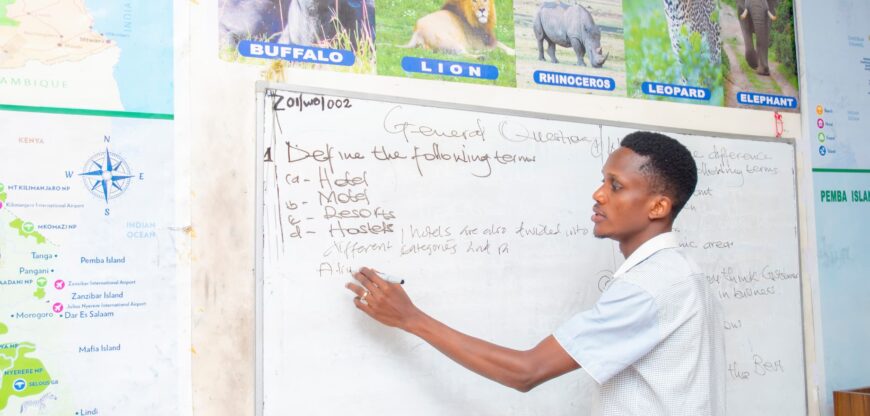 BUFFALO
LION
RHINOCEROS
LEOPARD
ELEPHANT
INDIA
AMBIQUE
KENYA
N
W
E
S
MT KILIMANJARO NP
Kilimanjaro International Airport
MKOMAZI NP
INDIAN
OCEAN
Tanga
Pangani
Pemba Island
AADANI NP
Zanzibar International Airport
Zanzibar Island
Julius Nyerere International Airport
Morogoro
Dar Es Salaam
Mafia Island
NYERERE NP
SELOUS GR
Lindi
PEMBA ISLAN
Z01/W0/002
General Question
1 Define the following terms
(a - Hotel
b - Motel
c - Resorts
d - Hostels, hotels are also divided into
different categories and
difference
following terms
area
think Customer
in business
the Best